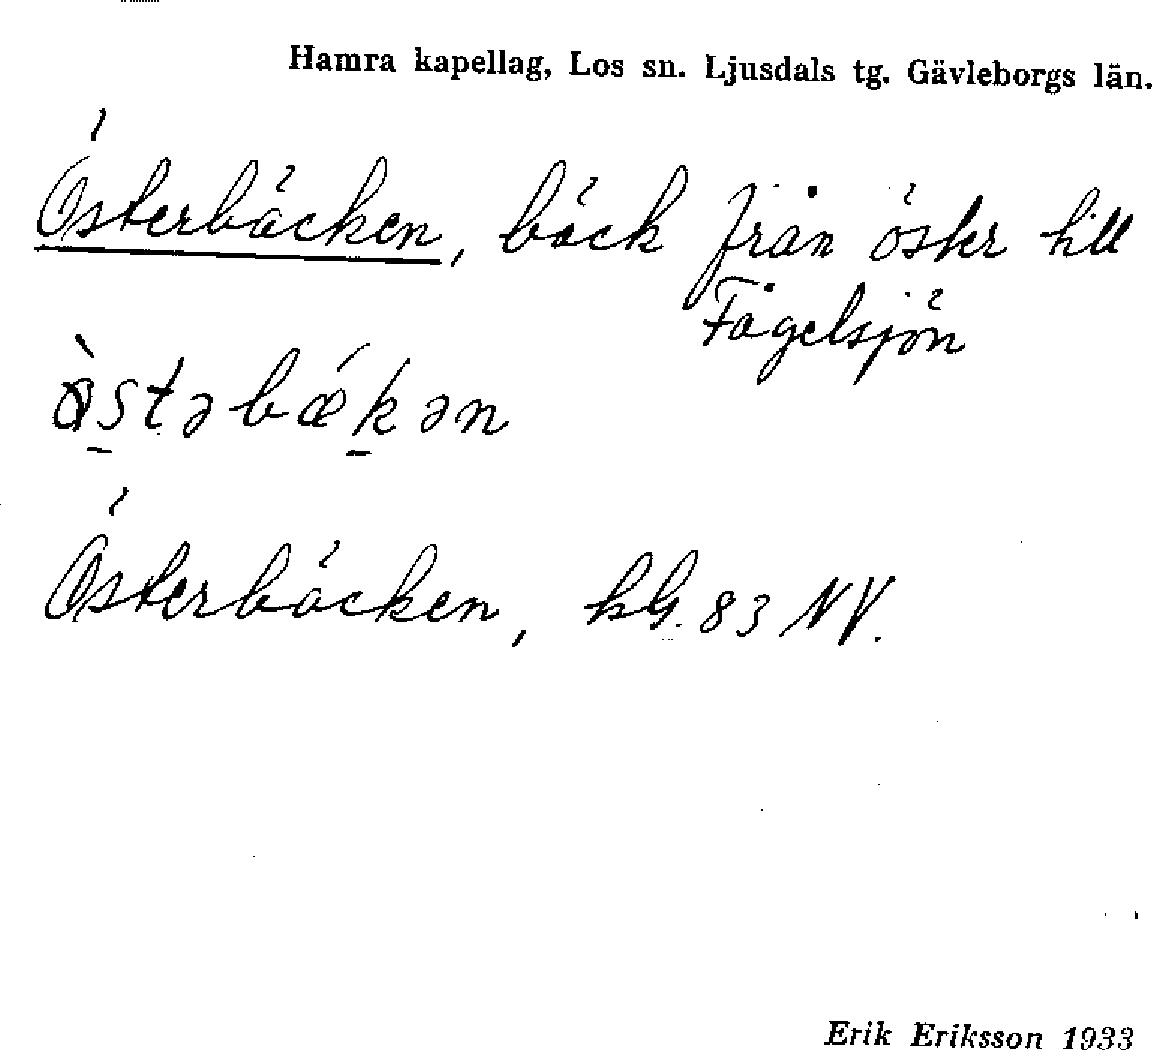 Hamra kapellag, Los sn. Ljusdals tg. Gävleborgs län.
Österbäcken, bäck från öster till
Fågelsjön
ɑ̀stəbǽkən
Österbäcken, kG. 83 NV.
Erik Eriksson 1933